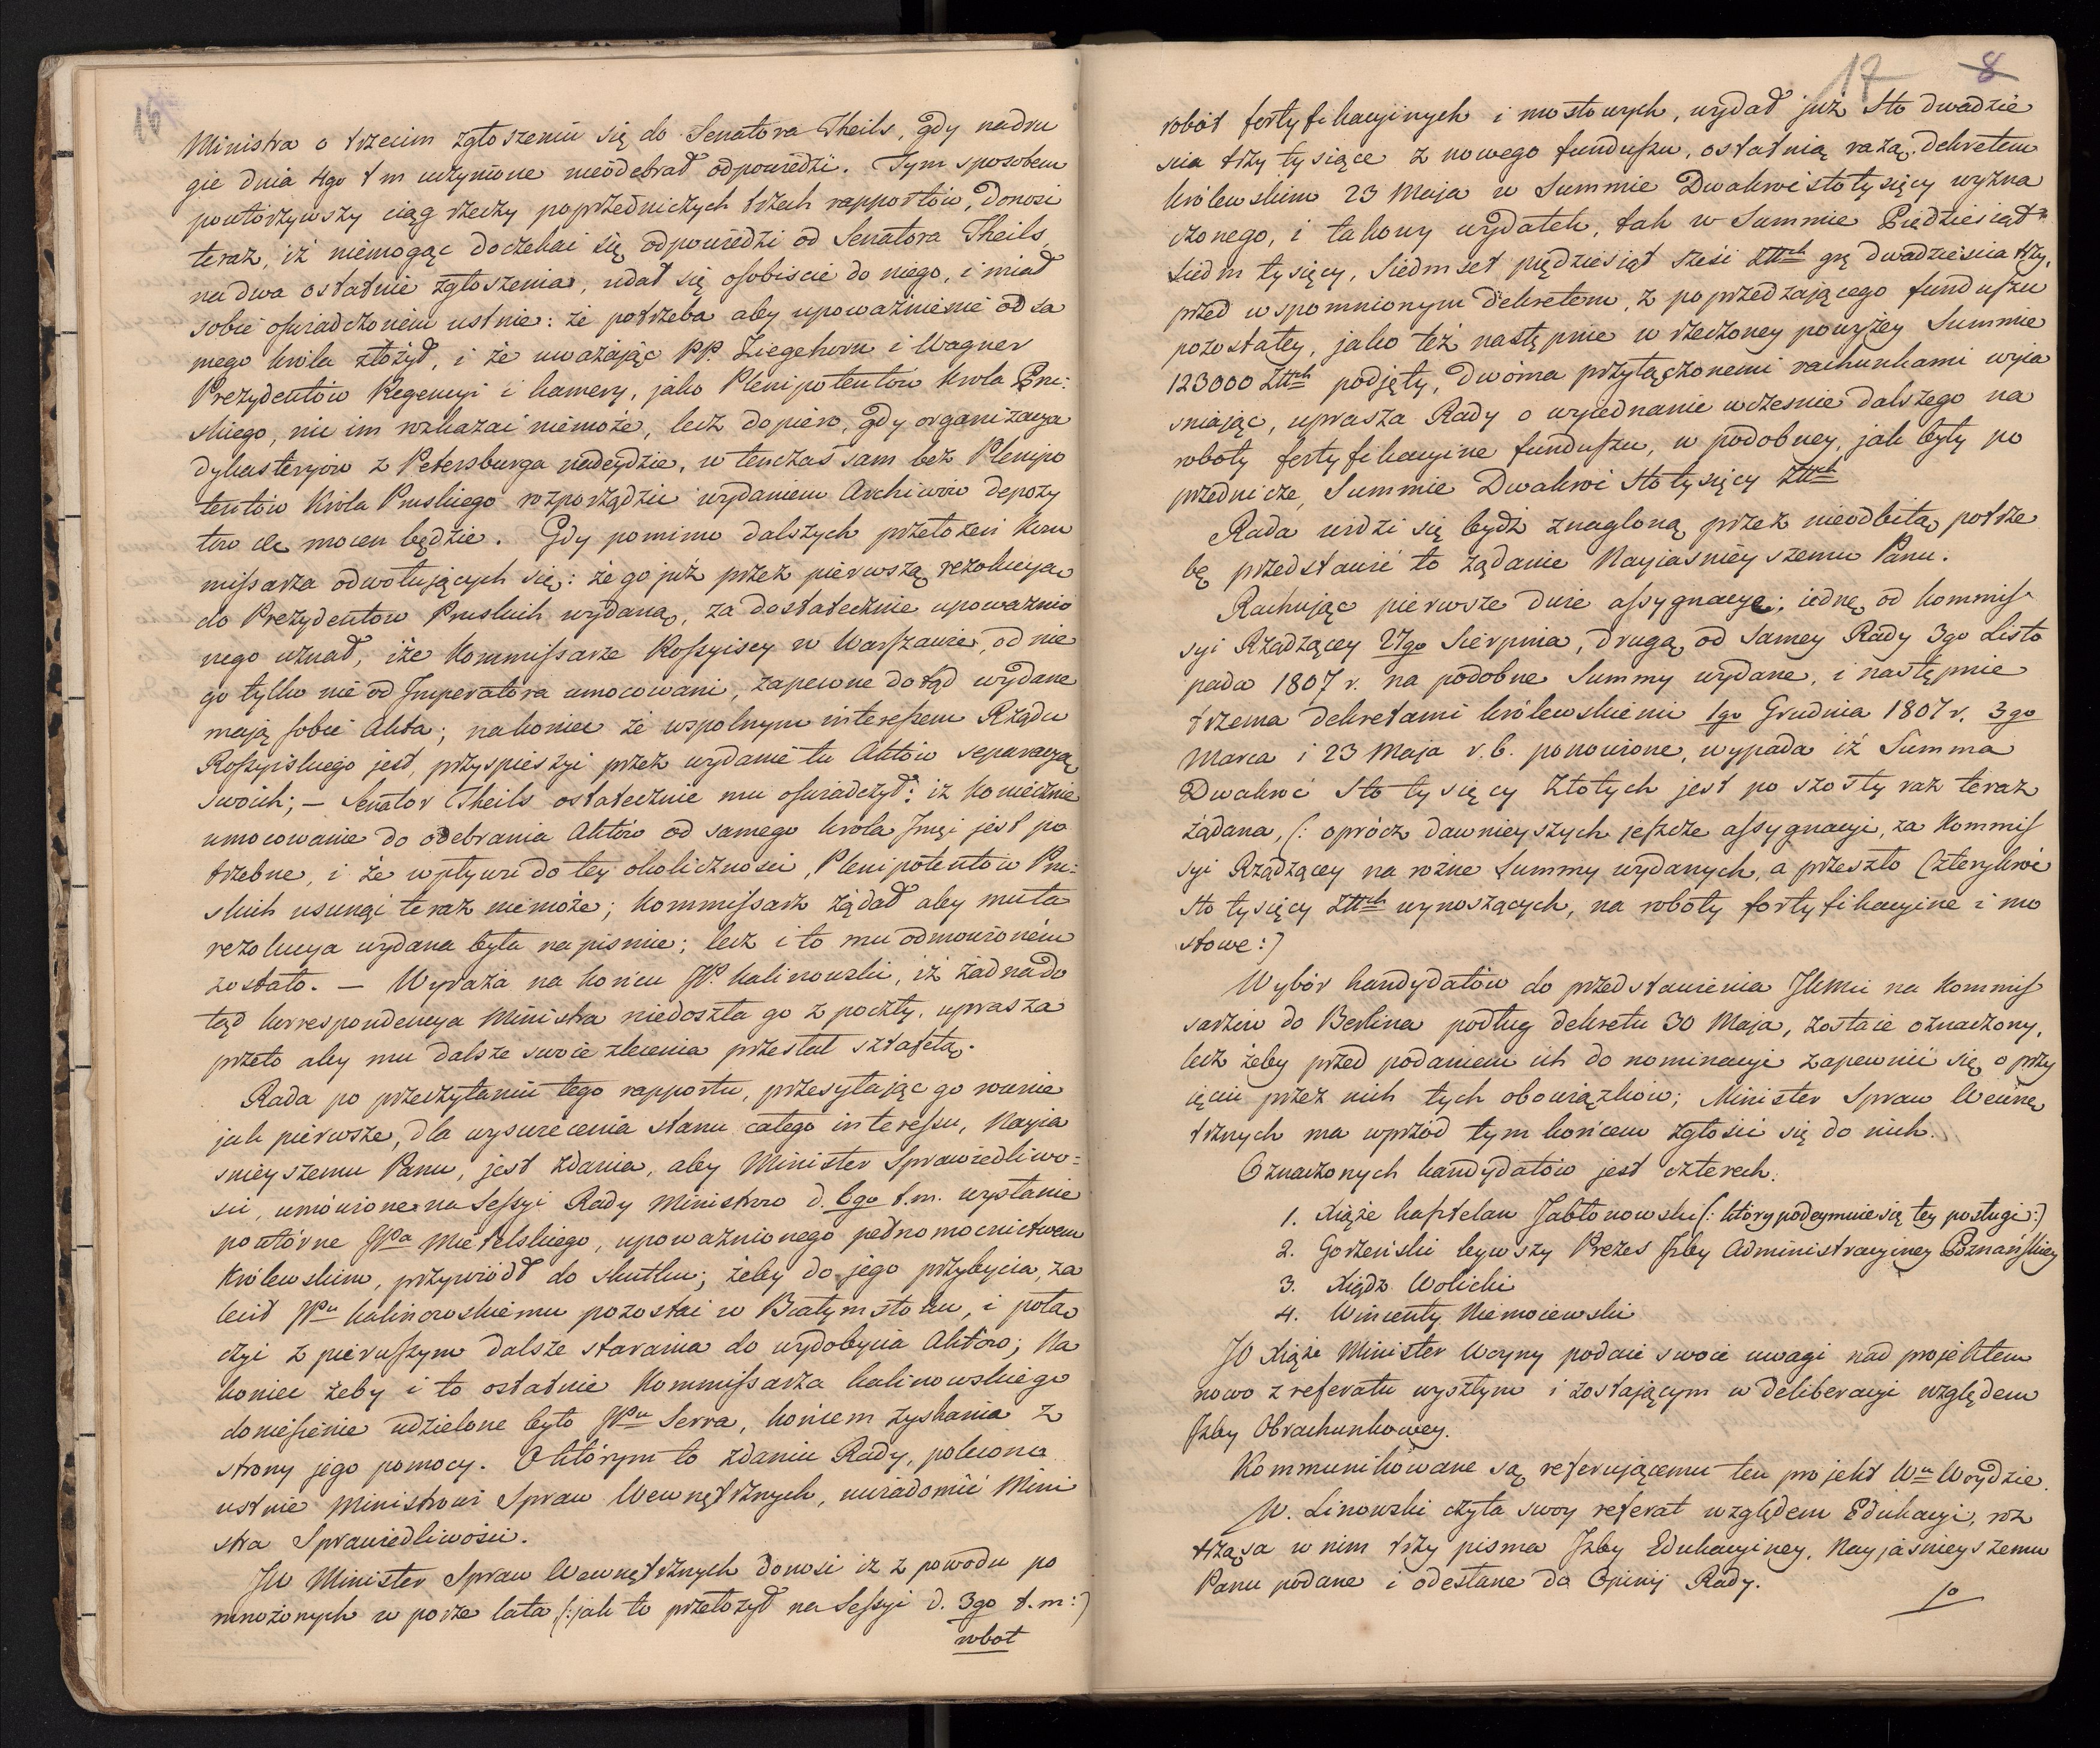 16
Ministra o trzecim zgłoszeniu się do Senatora Theils, gdy na dru
gie dnia 4go t m uczynione nieodebrał odpowiedzi. Tym sposobem
powtórzywszy ciąg rzeczy poprzedniczych trzech rapportów, donosi
teraz, iż niemogąc doczekać się odpowiedzi od Senatora Theils,
na dwa ostatnie zgłoszenia, udał się osobiscie do niego, i miał
sobie oświadczonem ustnie: że potrzeba aby upoważnienie od sa
mego króla złożył, i że uważając PP. Ziegehorn i Wagner
Prezydentów Regencyi i kamery, jako Plenipotentów króla Pru:
skiego, nic im rozkazać niemoże, lecz dopiero, gdy organizacya
dykasteryów z Petersburga nadeydzie, w tenczas sam bez Plenipo
tentów Króla Pruskiego rozporządzić wydaniem Archiwów depozy
tów etc mocen będzie. Gdy pomimo dalszych przełożeń Kom
missarza odwołujących się: że go już przez pierwszą rezolucyą
do Prezydentów Pruskich wydaną, za dostatecznie upoważnio
nego uznał, iże Kommissarze Rossyiscy w Warszawie, od nie
go tylko nie od Imperatora umocowani, zapewne dotąd wydane
mają sobie Akta; nakoniec że wspolnym interessem Rządu
Rossyiskiego jest, przyspieszyć przez wydanie tu Aktów separacyą
swoich; – Senator Theils ostatecznie mu oświadczył: iż koniecznie
umocowanie do odebrania Aktów od samego króla Jmci jest po
trzebne, i że wpływu do tey okoliczności, Plenipotentów Pru:
skich usunąć teraz niemoże; Kommissarz żądał aby mu ta
rezolucya wydana była na pismie; lecz i to mu odmowionem
zostało. – Wyraża na końcu JP. Kalinowski, iż żadna do
tąd korrespondencya Ministra niedoszła go z poczty, uprasza
przeto aby mu dalsze swoie zlecenia przesłał sztafetą.
Rada po przeczytaniu tego rapportu, przesyłając go rownie
jak pierwsze, dla wyswiecenia stanu całego interessu, Nayia
snieyszemu Panu, jest zdania, aby Minister Sprawiedliwo=
ści, umówione na Sessyi Rady Ministrów d. 6go t.m. wysłanie
powtórne JPa Mielelskiego, upoważnionego pełnomocnictwem
Królewskim, przywiódł do skutku; żeby do jego przybycia, za
lecił JPu Kalinowskiemu pozostać w Białymstoku, i połą
czyć z pierwszym dalsze starania do wydobycia Aktów; Na
koniec żeby i to ostatnie Kommissarza Kalinowskiego
doniesienie udzielone było JPu Serra, końcem zyskania z
strony jego pomocy. O którym to zdaniu Rady, polecono
ustnie Ministrowi Spraw Wewnętrznych, uwiadomić Mini
stra Sprawiedliwości.
JW Minister Spraw Wewnętrznych donosi iż z powodu po
mnożonych w porze lata (: jak to przełożył na Sessyi d. 3go t.m :)
robot
17 8
robót fortyfikacyinych i mostowych, wydał już Sto dwadzie
scia trzy tysiące z nowego funduszu, ostatnią razą dekretem
królewskim 23 Maja w Summie Dwakroć stotysięcy wyzna
czonego, i takowy wydatek, tak w Summie Pięćdziesiąt
Siedm tysięcy, Siedmset pięćdziesiąt sześć Złłch grą dwadzieścia trzy,
przed wspomnionym dekretem, z poprzedzającego funduszu
pozostałey, jako też następnie w rzeczoney powyżey Summie
123000 Złłch podjęty, dwóma przyłączonemi rachunkami wyia
sniając, uprasza Rady o wyiednanie wcześnie dalszego na
roboty fortyfikacyine funduszu, w podobney, jak były po
przednicze, Summie Dwakroć Sto tysięcy Złłch
Rada widzi się bydź znagloną przez nieodbitą potrze
bę przedstawić to żądanie Nayiaśnieyszemu Panu.
Rachując pierwsze dwie assygnacye; iedną od Kommis
syi Rządzącey 27go Sierpnia, drugą od samey Rady 3go Listo
pada 1807 r. na podobne Summy wydane, i następnie
trzema dekretami królewskiemi 1go Grudnia 1807 r. 3go
Marca i 23 Maja r. b. ponowione, wypada iż Summa
Dwakroć Sto tysięcy Złotych jest po szósty raz teraz
żądana, (: oprócz dawnieyszych jeszcze assygnacyi, za Kommis
syi Rządzącey na rożne Summy wydanych, a przeszło Czterykroć
sto tysięcy Złłch wynoszących, na roboty fortyfikacyine i mo
stowe :)
Wybór kandydatów do przedstawienia JKMci na Kommis
sarzów do Berlina podług dekretu 30 Maja, zostaie oznaczony,
lecz żeby przed podaniem ich do nominacyi zapewnić się o przy
ięciu przez nich tych obowiązków; Minister Spraw Wewnę
trznych ma wprzód tym końcem zgłosić się do nich.
Oznaczonych kandydatów jest czterech.
1. Xiąże kasztelan Jabłonowski (: który podeymuie się tey posługi :)
2. Gorzeński bywszy Prezes Izby Administracyiney Poznańskiey
3. Xiądz Wolicki
4. Wincenty Niemoiewski
JO Xiąże Minister Woyny podaie swoie uwagi nad projektem
nowo z referatu wyszłym i zostającym w deliberacyi względem
Izby Obrachunkowey.
Kommunikowane są referującemu ten projekt Wu Woydzie.
W. Linowski czyta swoy referat względem Edukacyi, roz
trząsa w nim trzy pisma Izby Edukacyiney, Nayjaśnieyszemu
Panu podane i odesłane do Opinij Rady.
1o